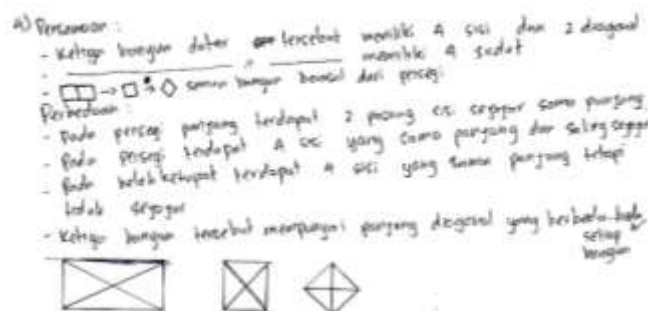 a) Persamaan :
- Ketiga bangun datar tersebut memiliki 4 sisi dan 2 diagonal
- " memiliki 4 sudut
- semua bangun berasal dari persegi
Perbedaan :
- Pada persegi panjang terdapat 2 pasang sisi sejajar sama panjang
- Pada persegi terdapat 4 sisi yang sama panjang dan saling sejajar
- Pada belah ketupat terdapat 4 sisi yang sama panjang tetapi
tidak sejajar
- Ketiga bangun tersebut mempunyai panjang diagonal yang berbeda
setiap
bangun